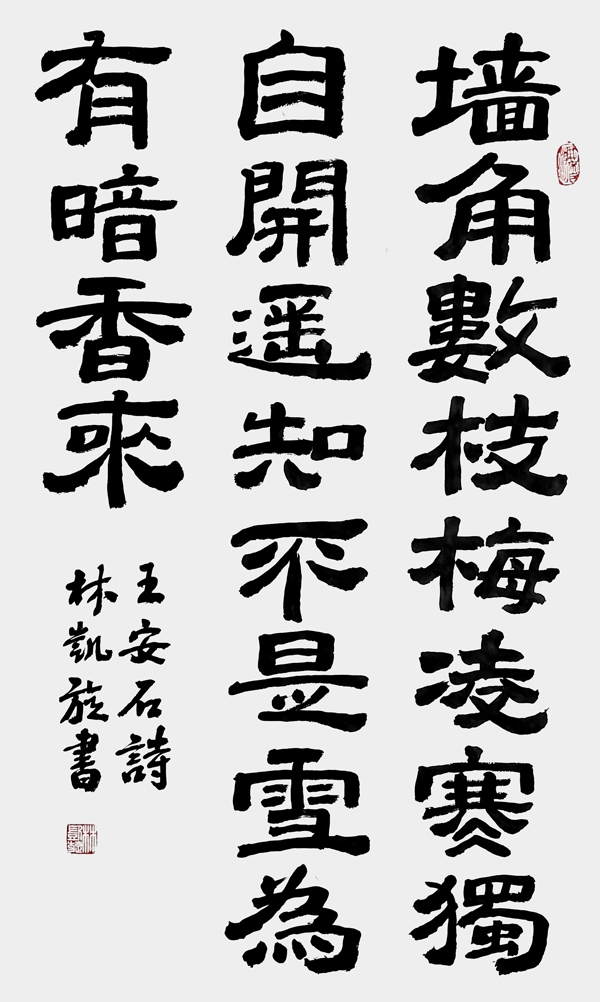 墙角數枝梅凌寒獨
自開遥知不是雪為
有暗香來
王安石詩
林凱旋書